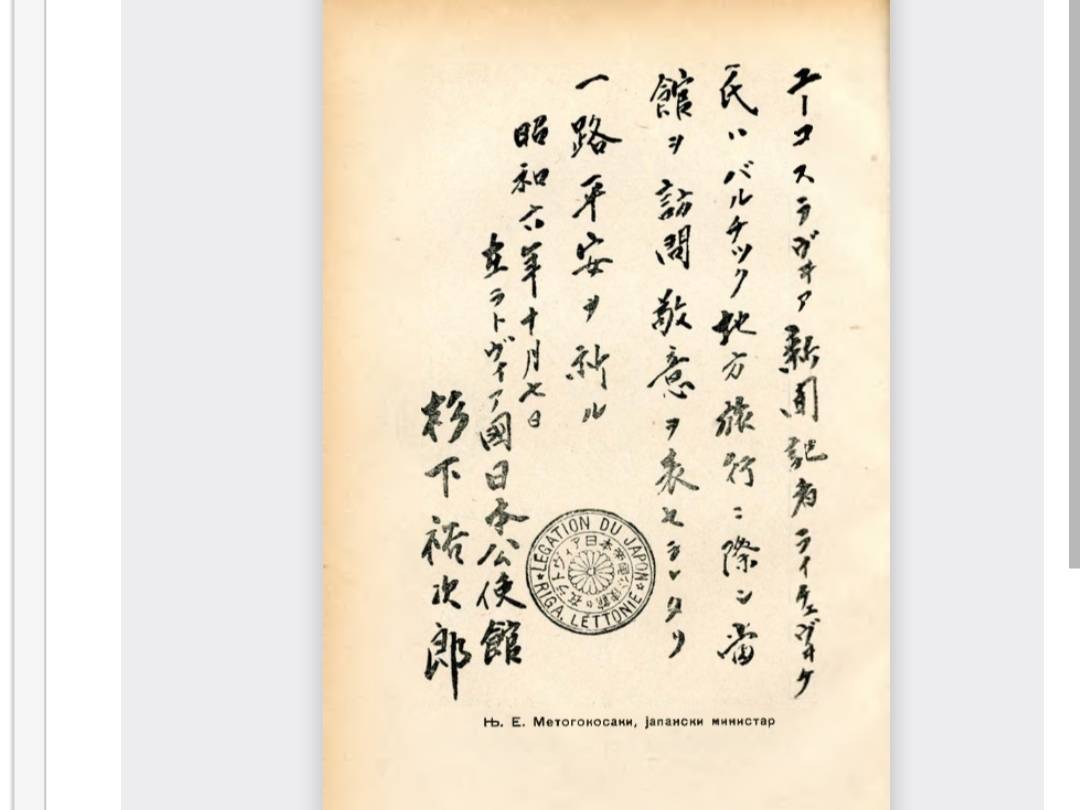 ユーコスラヴヰア新聞記者ライチェヴヰケ
氏ハバルチック地方旅行ニ際シ當
館ヲ訪問敬意ヲ表セラレタリ
一路平安ヲ祈ル
昭和六年十月七日
在ラトヴィア國日本公使館
杉下裕次郎
LEGATION DU JAPON
RIGA, LETTONIE
Њ. Е. Метогокосаки, јапански министар